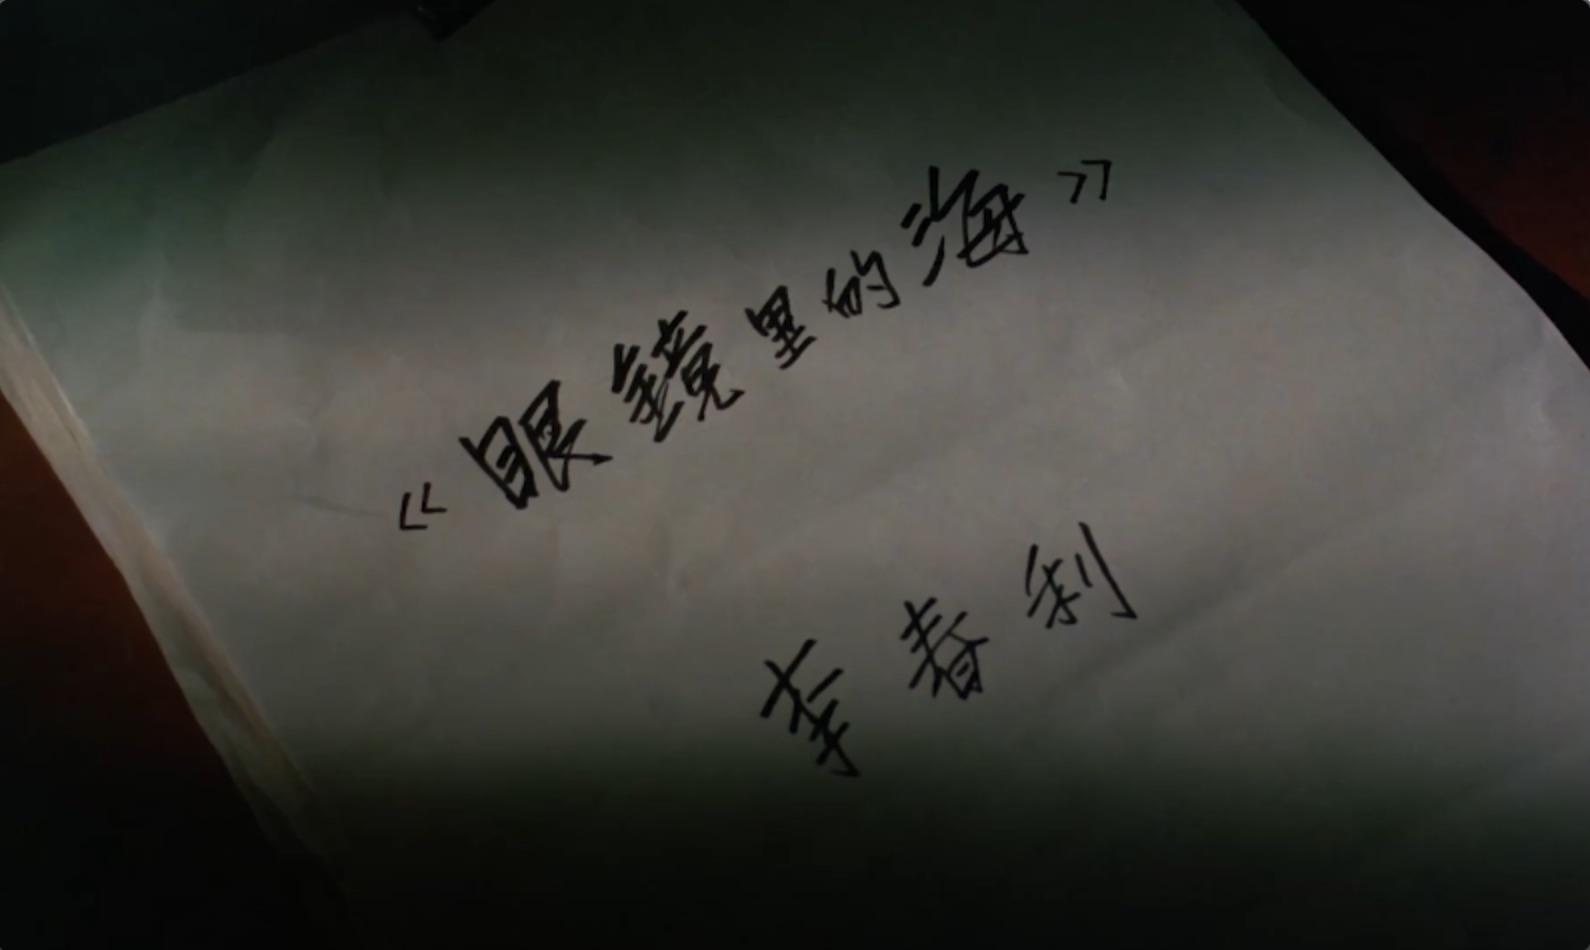 《眼镜里的海》
李春利